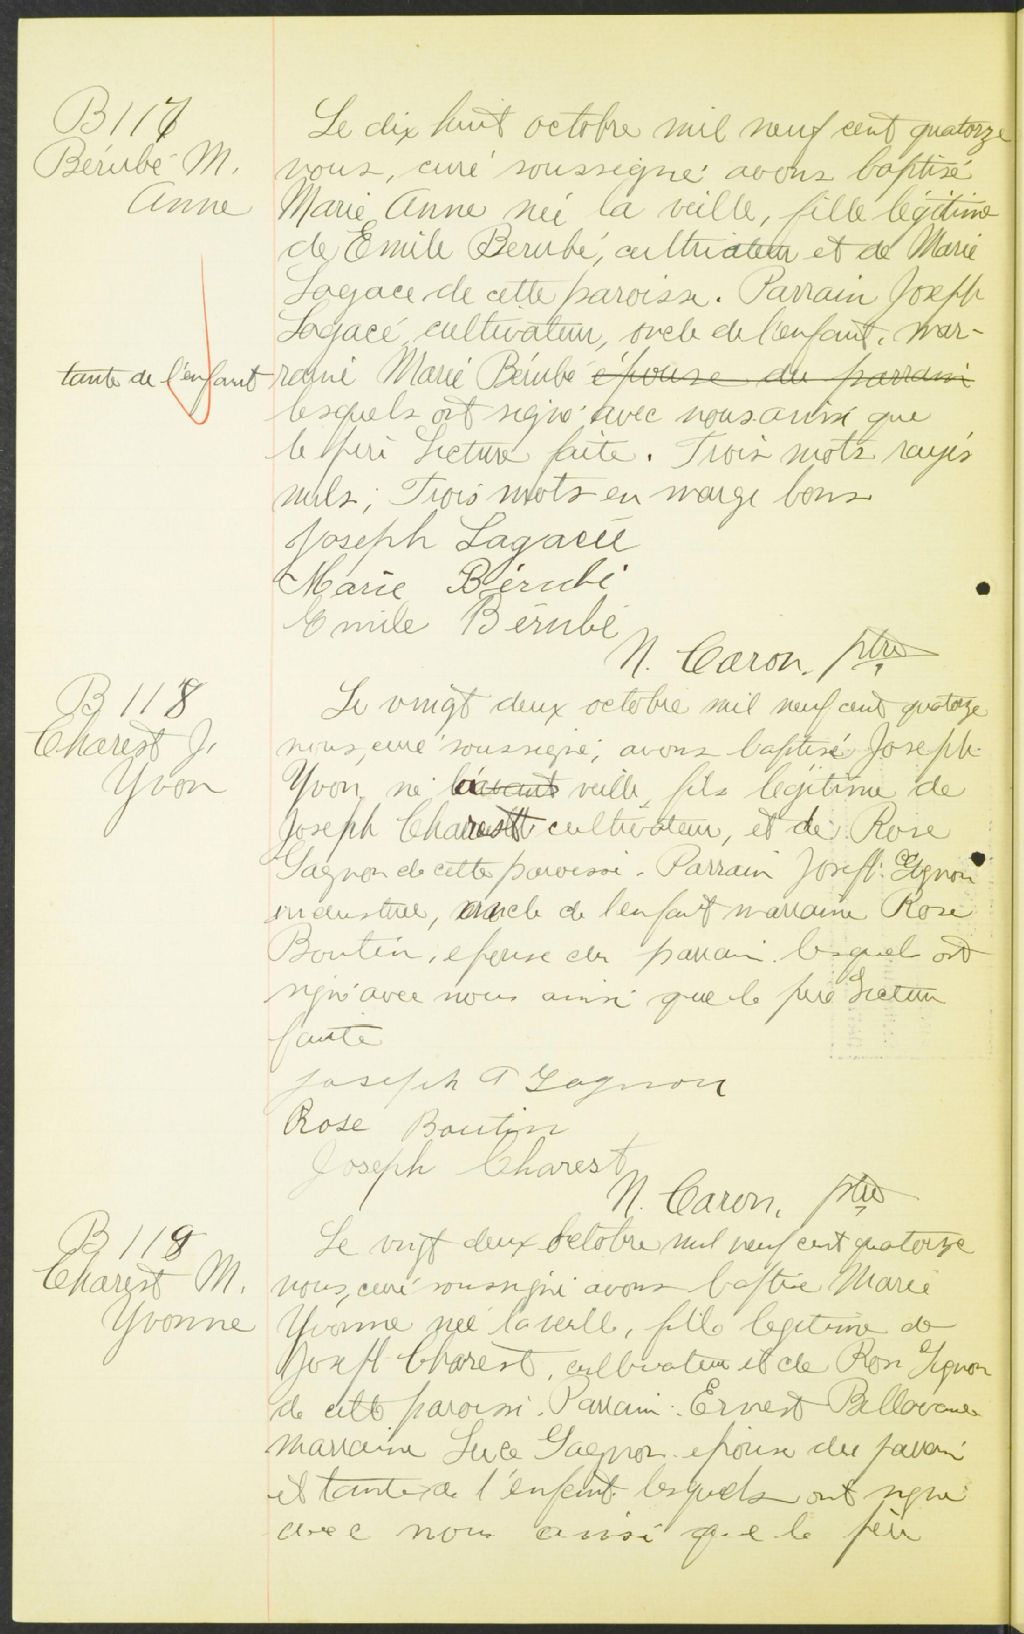 B 117
Bérubé M.
Anne
Le dix huit octobre mil neuf cent quatorze
nous, curé soussigné avons baptisé
Marie Anne née la veille, fille légitime
de Emile Berubé, cultivateur et de Marie
Lagace de cette paroisse. Parrain Joseph
Lagacé, cultivateur, oncle de l'enfant, mar-
raine Marie Bérubé épouse du parrain
tante de l'enfant
lesquels ont signé avec nous ainsi que
le père Lecture faite. Trois mots rayés
nuls; Trois mots en marge bons
Joseph Lagacée
Marie Bérubé
Emile Bérubé
N. Caron. ptre
B 118
Charest J.
Yvon
Le vingt deux octobre mil neuf cent quatorze
nous, curé soussigné, avons baptisé Joseph
Yvon, né la veille, fils légitime de
Joseph Charest cultivateur, et de Rose
Gagnon de cette paroisse. Parrain Joseph Gagnon
oncle de l'enfant marraine Rose
Boutin, epouse du parrain lesquels ont
signé avec nous ainsi que le père Lecture
faite
Joseph T Gagnon
Rose Boutin
Joseph Charest
N. Caron, ptre
B 119
Charest M.
Yvonne
Le vingt deux octobre mil neuf cent quatorze
nous, curé soussigné avons baptisé Marie
Yvonne née la veille, fille legitime de
Joseph Charest, cultivateur et de Rose Gagnon
de cette paroisse. Parrain Ernest Bellavance
marraine Luce Gagnon epouse du parrain
et tante de l'enfant lesquels ont signé
avec nous ainsi que le père